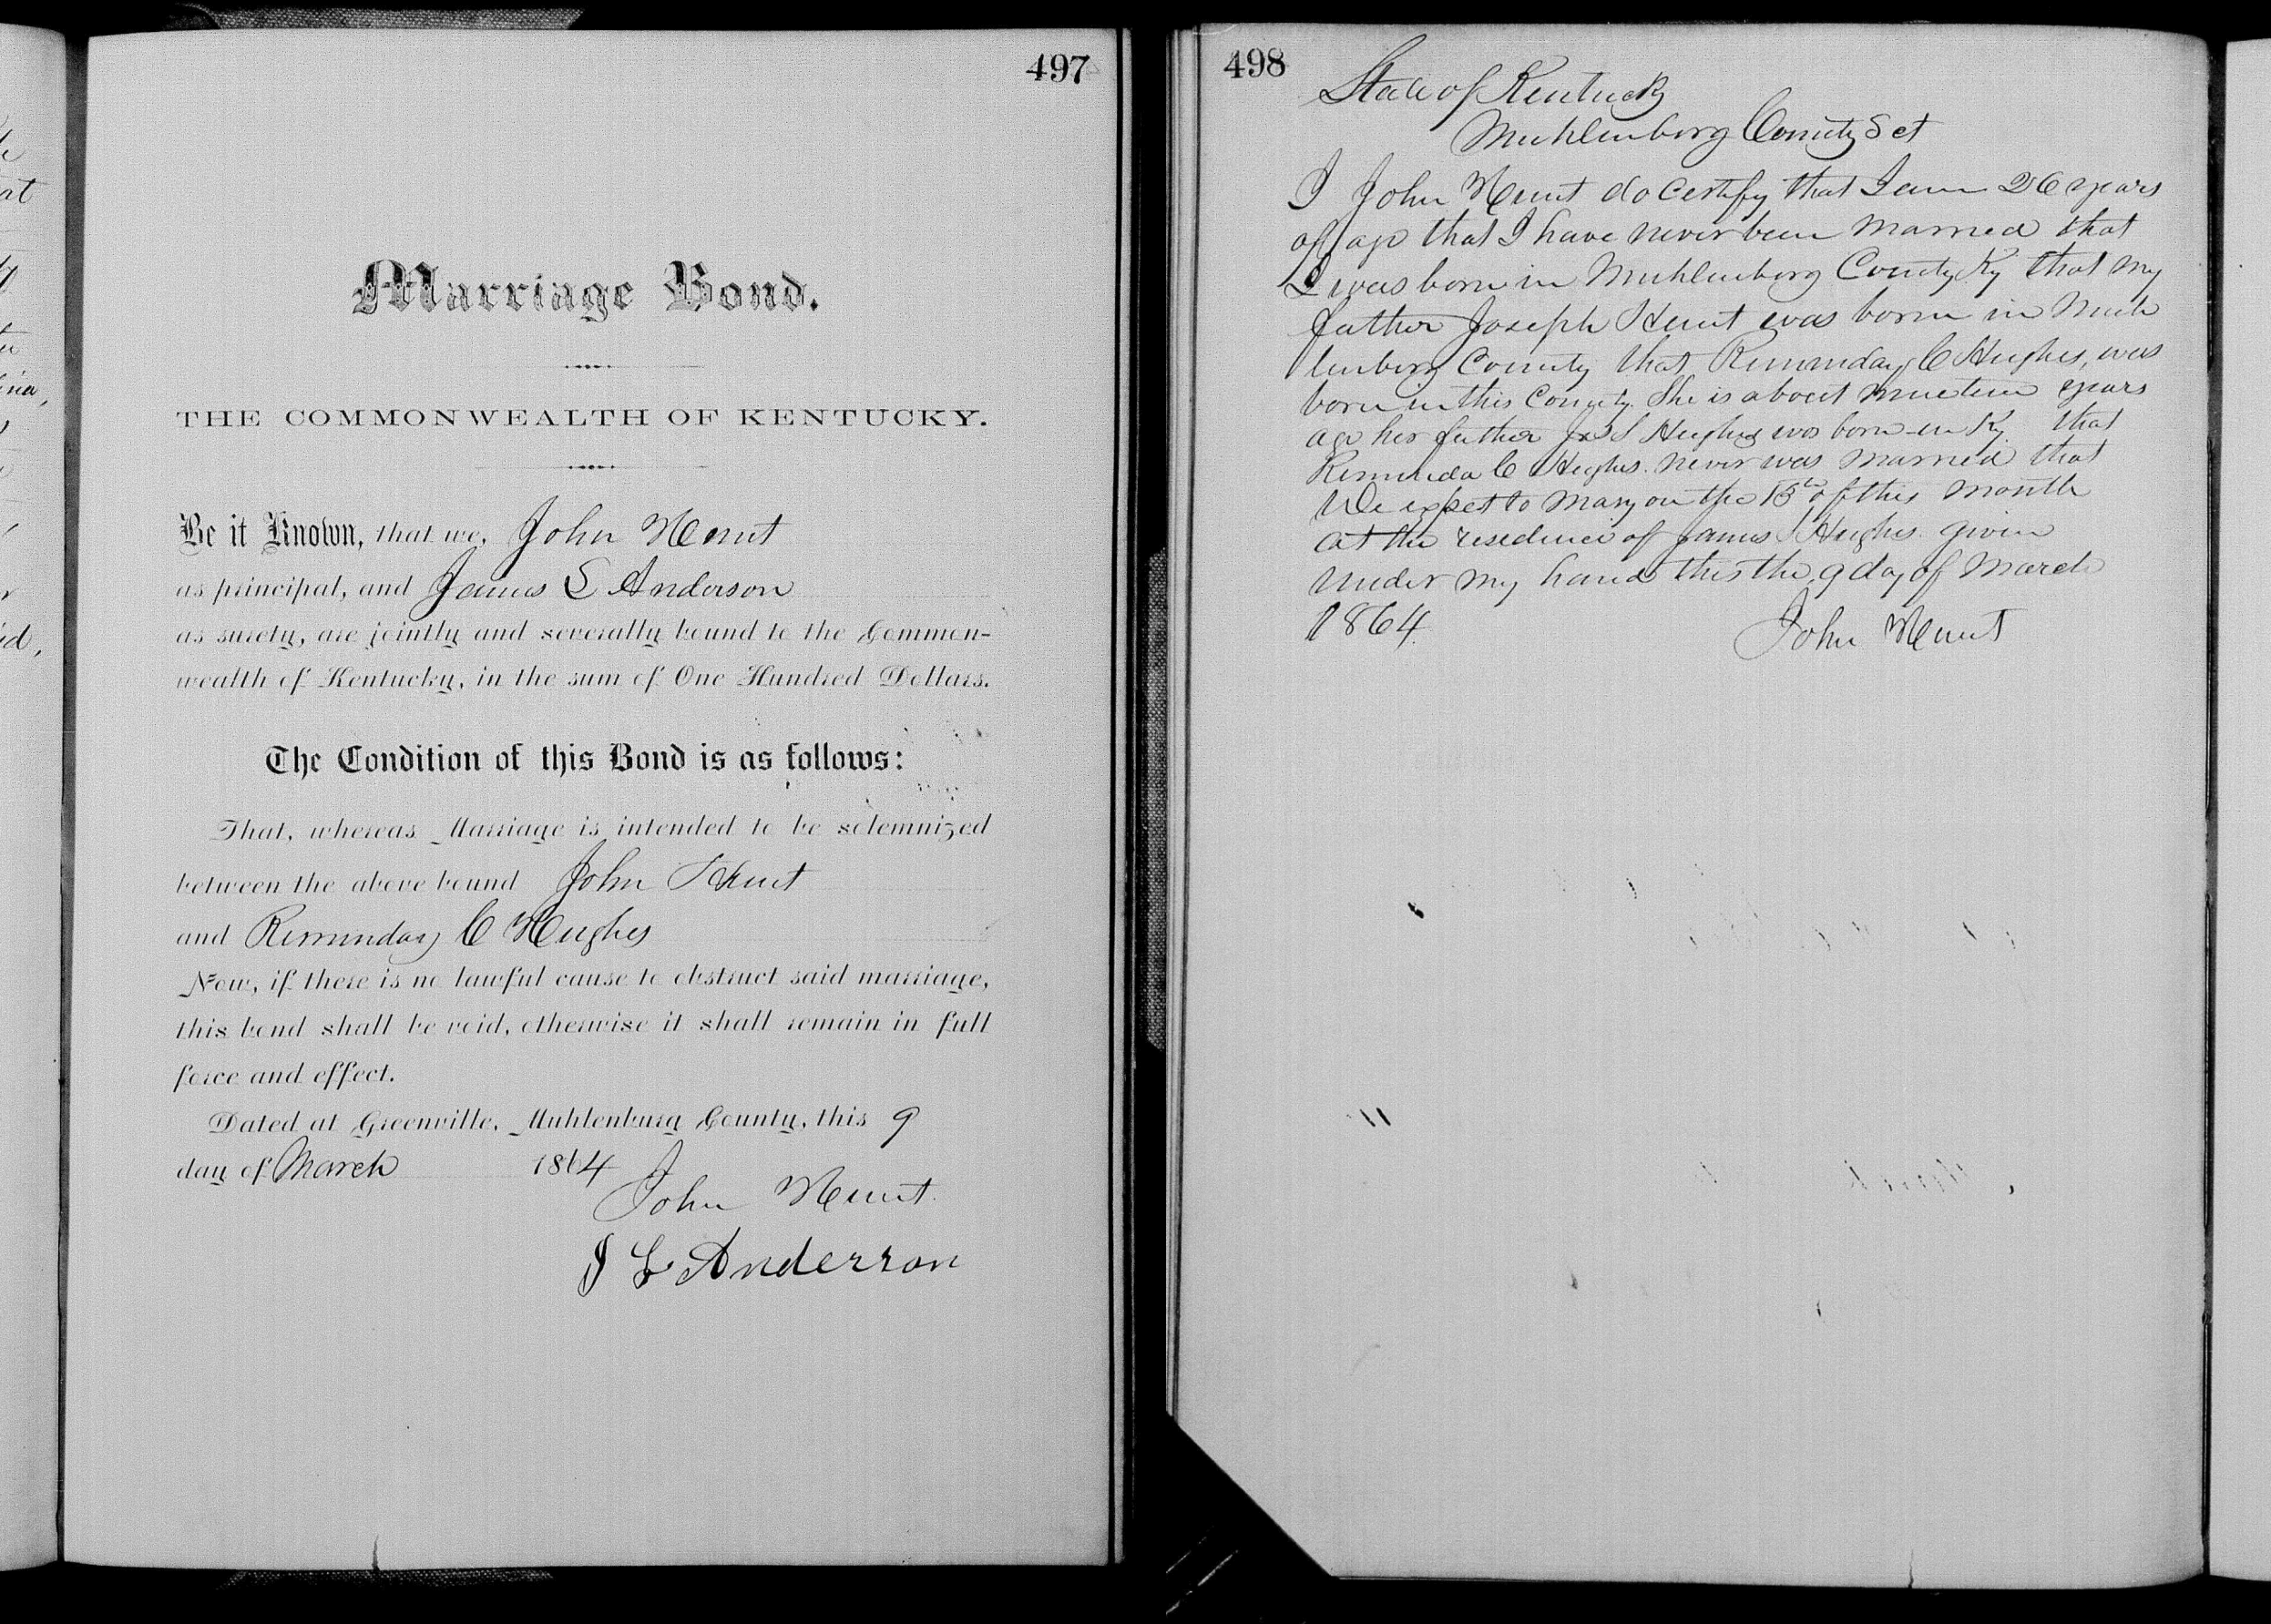 497
Marriage Bond.
THE COMMONWEALTH OF KENTUCKY.
Be it Known, that we, John Hunt
as principal, and James L Anderson
as surety, are jointly and severally bound to the Common-
wealth of Kentucky, in the sum of One Hundred Dollars.
The Condition of this Bond is as follows:
That, whereas Marriage is intended to be solemnized
between the above bound John Hunt
and Reminday C Hughes
Now, if there is no lawful cause to obstruct said marriage,
this bond shall be void, otherwise it shall remain in full
force and effect.
Dated at Greenville, Muhlenburg County, this 9
day of March 1864
John Hunt.
J L Anderson
498
State of Kentucky
Muhlenburg County Sct
I John Hunt do certify that I am 26 years
of age that I have never been married that
I was born in Muhlenburg County Ky that my
father Joseph Hunt was born in Muh
lenburg County that Reminday C Hughes, was
born in this County. She is about nineteen years
age her father Jas S Hughes was born in Ky. that
Reminda C Hughes. never was married that
We expect to mary on the 15th of this month
at the residence of James S Hughes. given
under my hand this the 9 day of March
1864. John Hunt